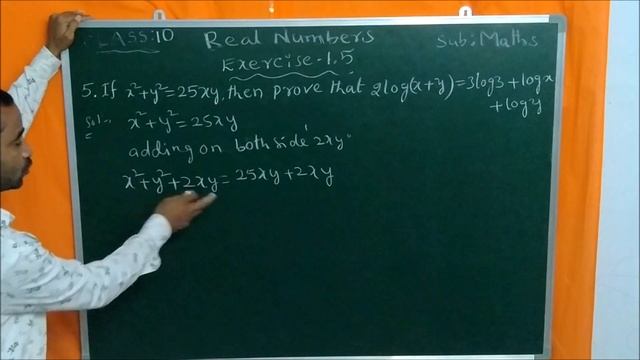 CLASS:10
Real Numbers
Sub: Maths
Exercise-1.5
5. If x²+y²=25xy, then prove that 2log(x+y)=3log3+logx
+logy
Sol:
x²+y²=25xy
adding on both side '2xy'
x²+y²+2xy=25xy+2xy